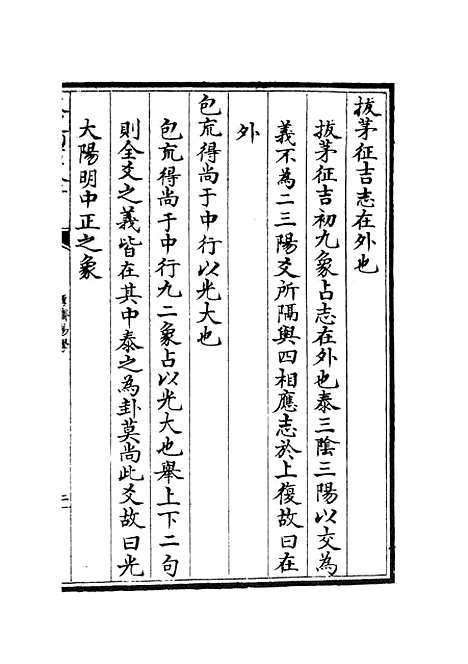 拔茅征吉志在外也
拔茅征吉初九象占志在外也泰三陰三陽以交為
義不為二三陽爻所隔與四相應志於上復故曰在
外
包巟得尚于中行以光大也
包巟得尚于中行九二象占以光大也舉上下二句
則全爻之義皆在其中泰之為卦莫尚此爻故曰光
大陽明中正之象